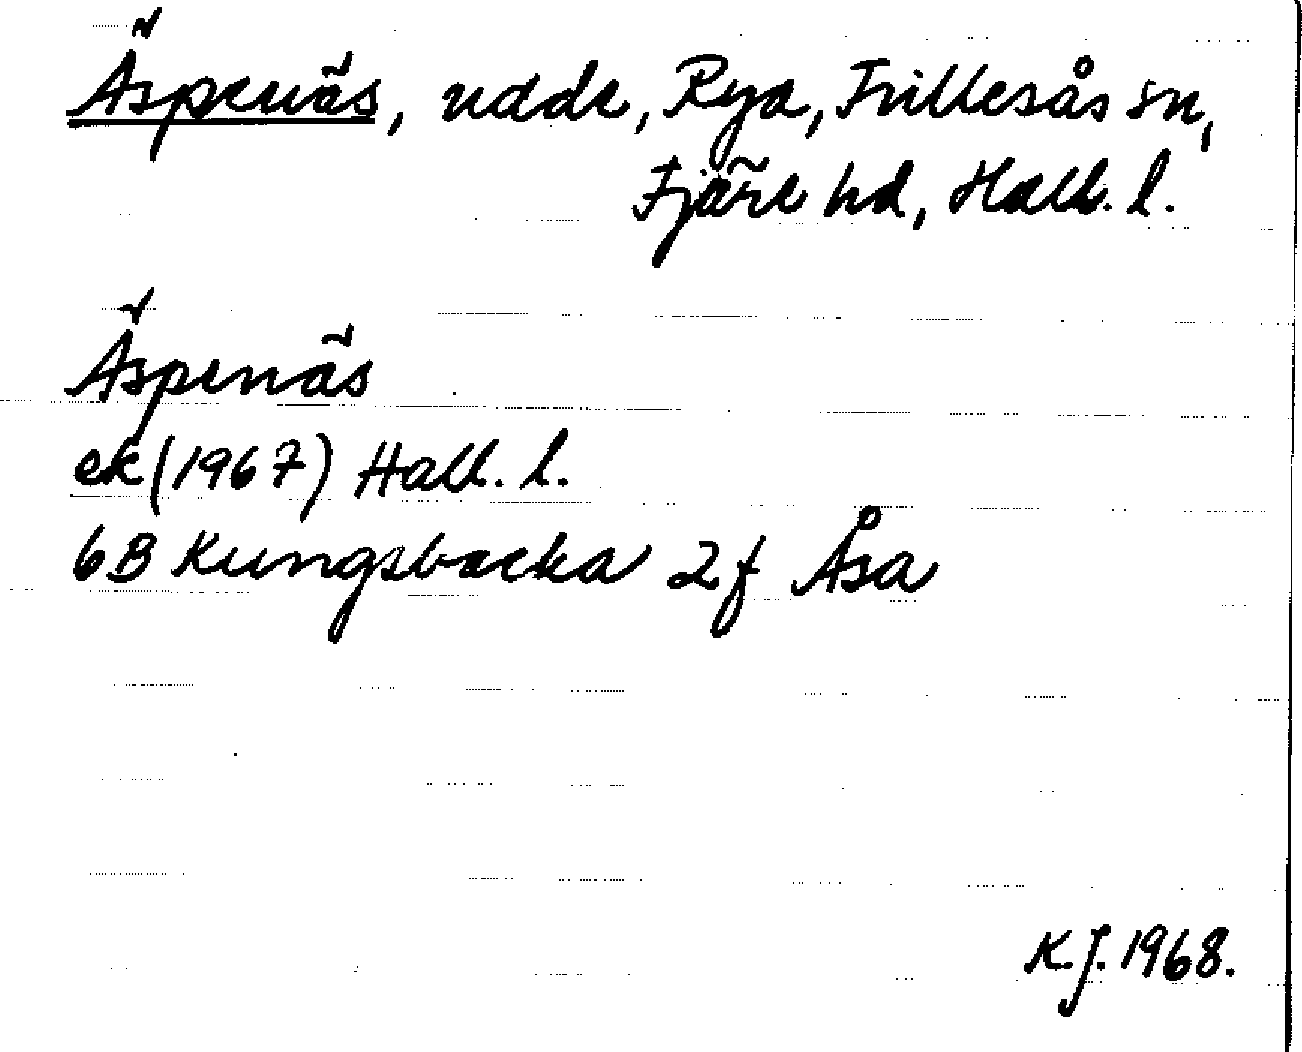 Äspenäs, udde, Rya, Frillesås sn,
Fjäre hd, Hall. l.
Äspenäs
ek (1967) Hall. l.
6B Kungsbacka 2f Åsa
K.J. 1968.